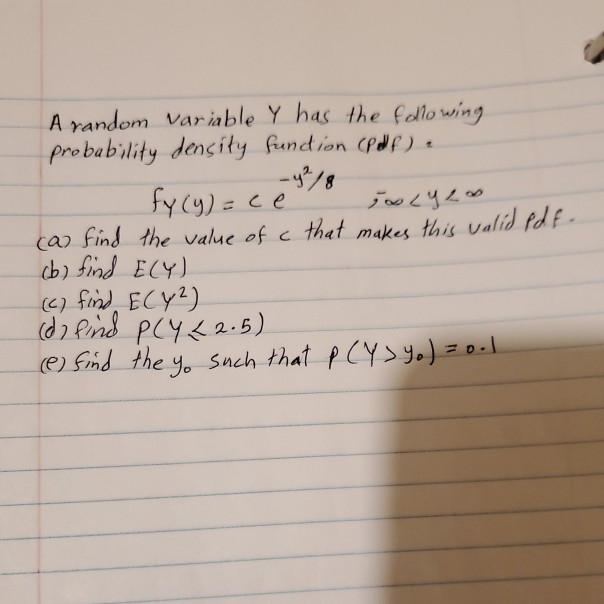 A random variable Y has the following
probability density function (pdf):
fY(y) = c e^{-y²/8} ; -∞ < y < ∞
(a) find the value of c that makes this valid pdf.
(b) find E(Y)
(c) find E(Y²)
(d) find P(Y ≤ 2.5)
(e) find the y₀ such that P(Y > y₀) = 0.1